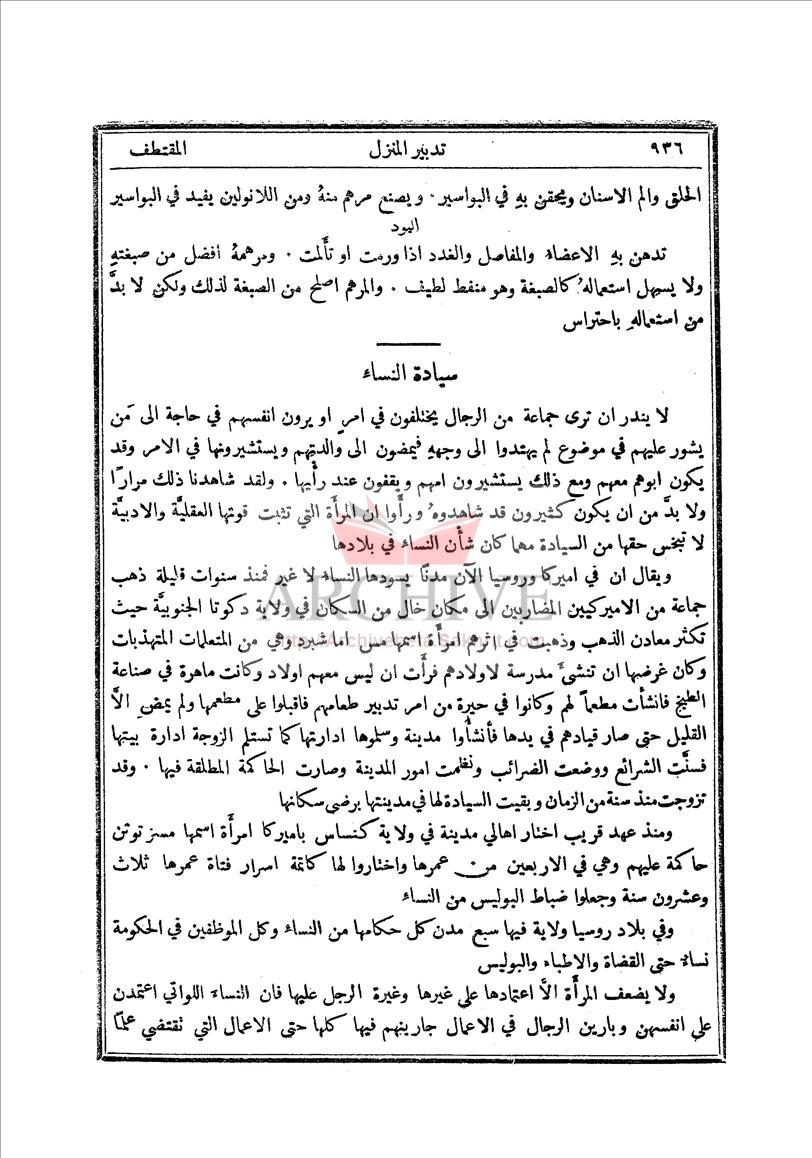 ٩٣٦ تدبير المنزل المقتطف
الحلق والم الاسنان ويحقن بهِ في البواسير · ويصنع مرهم منهُ ومن اللانولين يفيد في البواسير
اليود
تدهن بهِ الاعضاء والمفاصل والغدد اذا ورمت او تأَلمت · ومرهمهُ افضل من صبغتهِ
ولا يسهل استعمالهُ كالصبغة وهو منفط لطيف · والمرهم اصلح من الصبغة لذلك ولكن لا بدَّ
من استعمالهِ باحتراس
سيادة النساء
لا يندر ان ترى جماعة من الرجال يختلفون في امرٍ او يرون انفسهم في حاجة الى مَن
يشور عليهم في موضوع لم يهتدوا الى وجههِ فيمضون الى والدتِهم ويستشيرونها في الامر وقد
يكون ابوهم معهم ومع ذلك يستشيرون امهم ويقفون عند رأْيها · ولقد شاهدنا ذلك مرارًا
ولا بدَّ من ان يكون كثيرون قد شاهدوهُ ورأَوا ان المرأَة التي تثبت قوتها العقليَّة والادبيَّة
لا تبخس حقها من السيادة مهما كان شأْن النساء في بلادها
ويقال ان في اميركا وروسيا الآن مدنًا يسودها النساء لا غير فمنذ سنوات قليلة ذهب
جماعة من الاميركيين المضاربين الى مكان خال من السكان في ولاية دكوتا الجنوبيَّة حيث
تكثر معادن الذهب وذهبت في اثرهم امرأَة اسمها مس اما شيرد وهي من المتعلمات المتهذبات
وكان غرضها ان تنشئَ مدرسة لاولادهم فرأَت ان ليس معهم اولاد وكانت ماهرة في صناعة
الطبخ فانشأَت مطعماً لهم وكانوا في حيرة من امر تدبير طعامهم فاقبلوا على مطعمها ولم يمضِ الاَّ
القليل حتى صار قيادهم في يدها فأنشأُوا مدينة وسلموها ادارتها كما تستلم الزوجة ادارة بيتها
فسنَّت الشرائع ووضعت الضرائب ونظمت امور المدينة وصارت الحاكمة المطلقة فيها · وقد
تزوجت منذ سنة من الزمان وبقيت السيادة لها في مدينتها برضى سكانها
ومنذ عهد قريب اختار اهالي مدينة في ولاية كنساس باميركا امرأَة اسمها مسز توتن
حاكمة عليهم وهي في الاربعين من عمرها واختاروا لها كاتمة اسرار فتاة عمرها ثلاث
وعشرون سنة وجعلوا ضباط البوليس من النساء
وفي بلاد روسيا ولاية فيها سبع مدن كل حكامها من النساء وكل الموظفين في الحكومة
نساء حتى القضاة والاطباء والبوليس
ولا يضعف المرأَة الاَّ اعتمادها على غيرها وغيرة الرجل عليها فان النساء اللواتي اعتمدن
على انفسهن وبارين الرجال في الاعمال جارينهم فيها كلها حتى الاعمال التي تقتضي عملًا
ARCHIVE